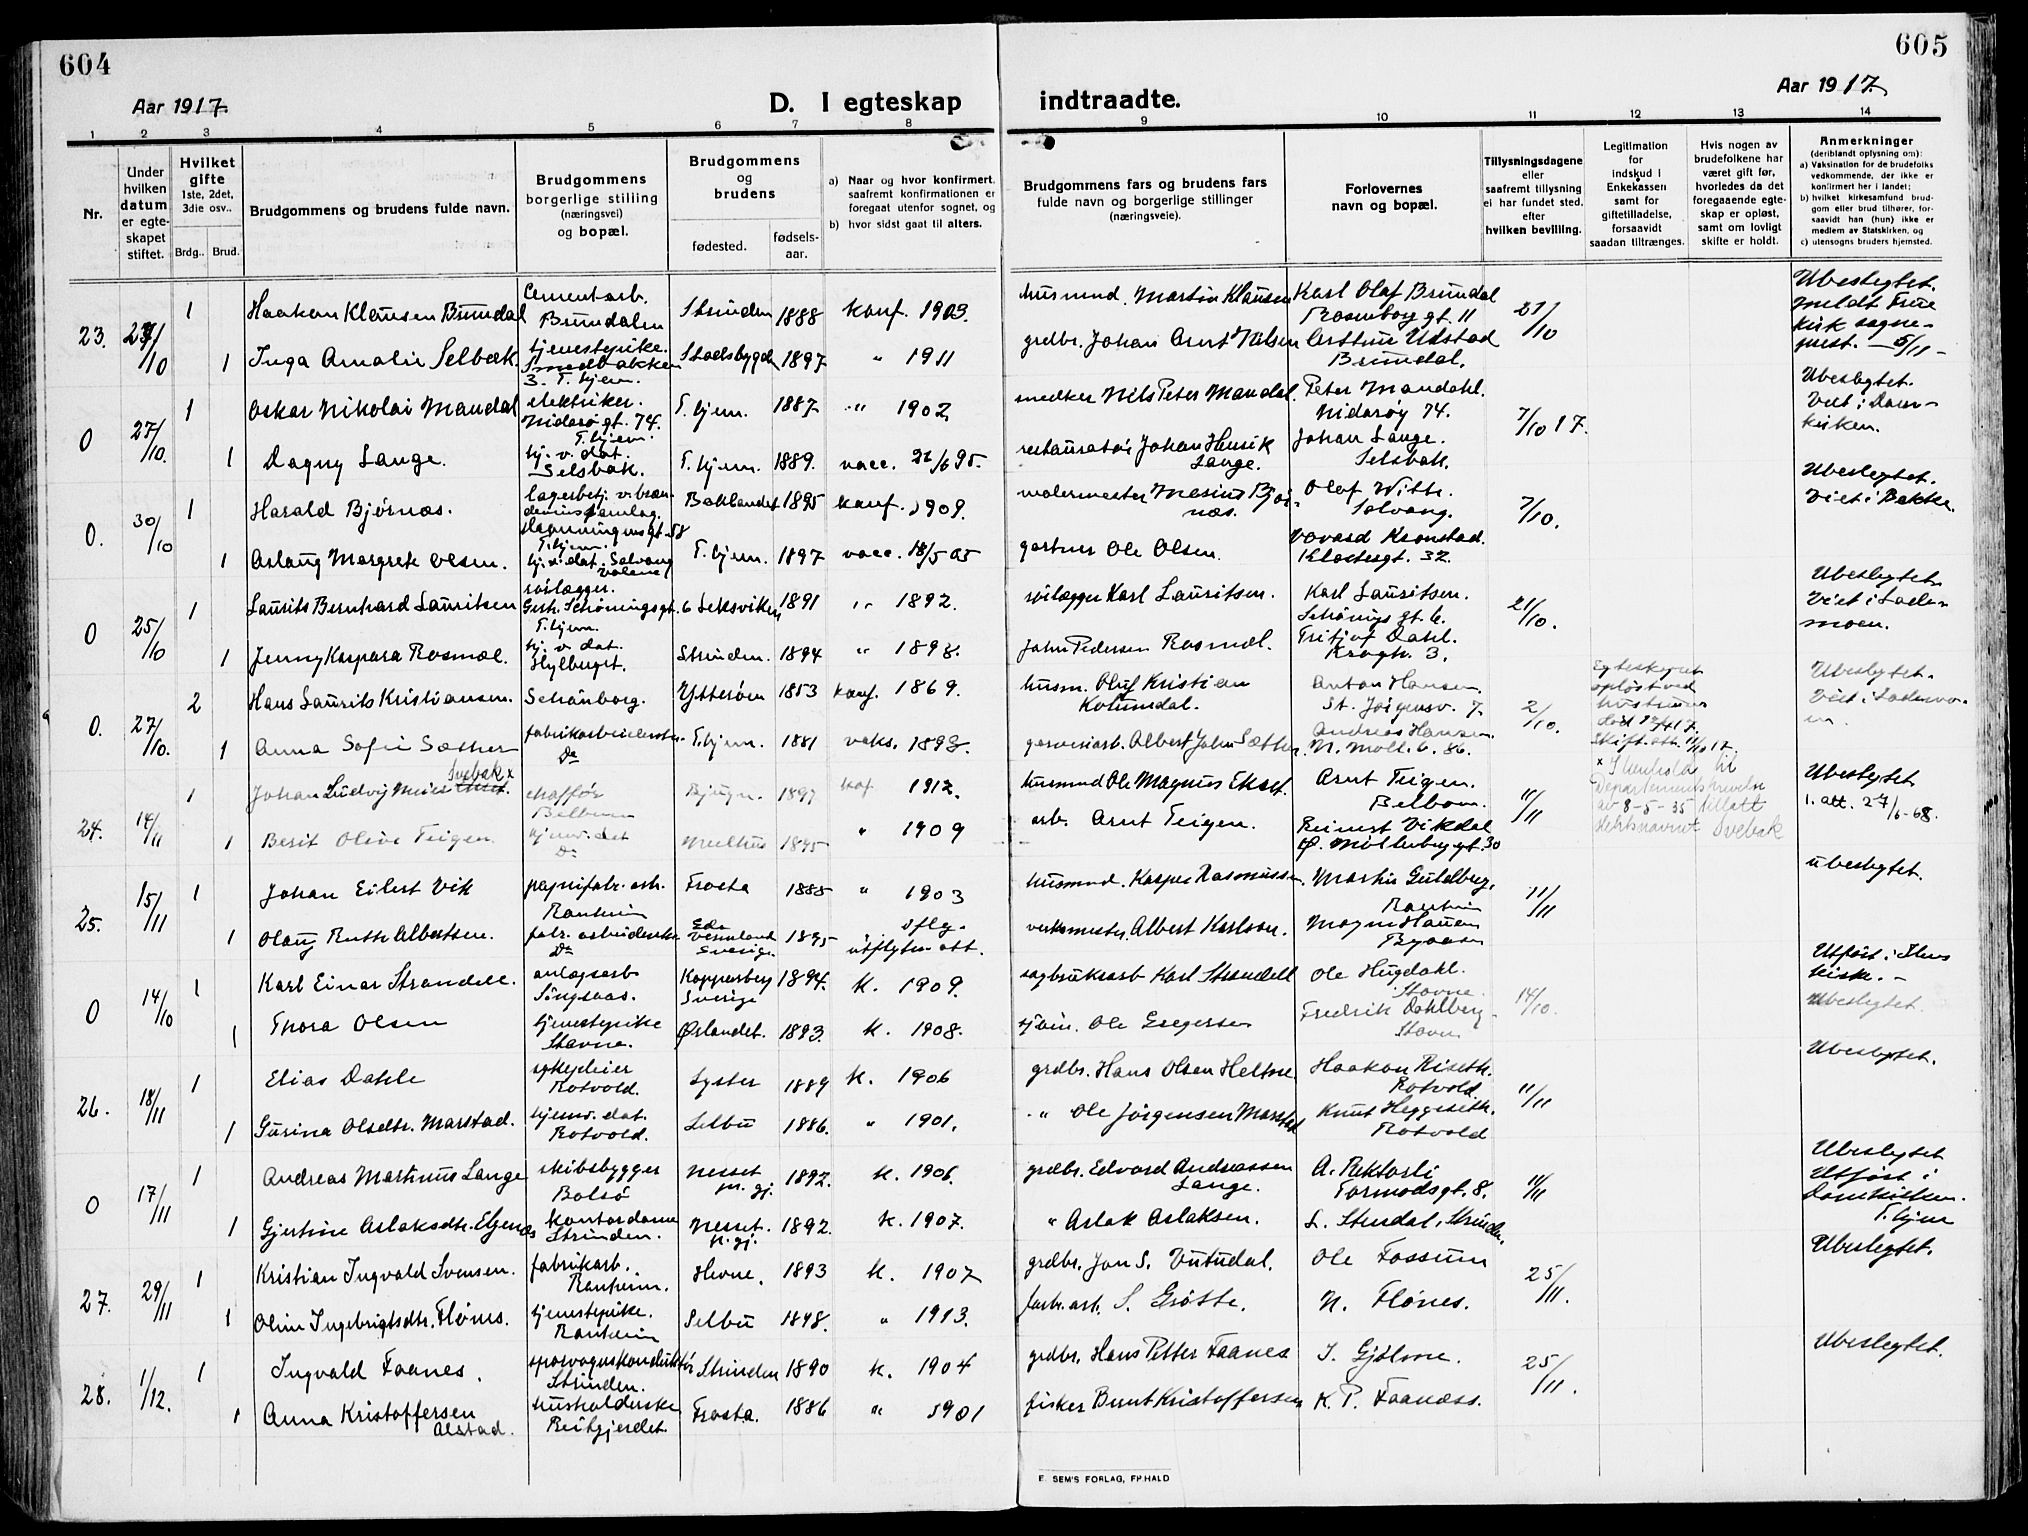 604
605
Aar 1917.
Aar 1917.
D. I egteskap indtraadte.
1 2 3 4 5 6 7 8 9 10 11 12 13 14
Nr.
Under hvilken datum er egteskapet stiftet.
Hvilket gifte 1ste, 2det, 3die osv..
Brdg.. Brud.
Brudgommens og brudens fulde navn.
Brudgommens borgerlige stilling (næringsvei) og bopæl.
Brudgommens og brudens
fødested. fødselsaar.
a) Naar og hvor konfirmert, saafremt konfirmationen er foregaat utenfor sognet, og
b) hvor sidst gaat til alters.
Brudgommens fars og brudens fars fulde navn og borgerlige stillinger (næringsveie).
Forlovernes navn og bopæl.
Tillysningsdagene eller saafremt tillysning ei har fundet sted, efter hvilken bevilling.
Legitimation for indskud i Enkekassen samt for giftetilladelse, forsaavidt saadan tiltrænges.
Hvis nogen av brudefolkene har været gift før, hvorledes da det foregaaende egteskap er opløst, samt om lovligt skifte er holdt.
Anmerkninger (deriblandt oplysning om):
a) Vaksination for de brudefolks vedkommende, der ikke er konfirmert her i landet;
b) hvilket kirkesamfund brudgom eller brud tilhører, forsaavidt han (hun) ikke er medlem av Statskirken, og
c) utensogns bruders hjemsted.
23. /10 1 Haakon Klausen Brundal Cementarb. Brundalen Strinden 1888 konf. 1903. husmnd. Martin Klausen Karl Olaf Brundal Rosenborg gt. 11 21/10 Ubeslegtet.
1 Inga Amalie Selbæk tjenestepike. Stadsbygden 1897 " 1911 grdbr. Johan Arnt Nilsen Udstad Brundal.
0 27/10. 1 Oskar Nikolai Mandal elektriker. Nidarø gt. 74. T.hjem. T.hjem. 1887 " 1902 snedker Nils Peter Mandal. Peter Mandahl. Nidarøy 74. 7/10 17. Ubeslegtet. Viet i Domkirken.
1 Dagny Lange. hj. v. dat. Selsbak. T.hjem. 1889. vacc. 22/6 95. restauratør Johan Henrik Lange. Johan Lange. Selsbak.
0. 30/10 1 Harald Bjørnæs. Baklandet 1895 konf. 1909. malermester Bjørnæs. Olaf Olaf Solvang. 7/10. Ubeslegtet. Viet i Bakke.
1 Aslaug Margrete Olsen. hj. v. dat. Solvang T.hjem. 1897 vacc. 18/5 05 gartner Ole Olsen. Kronstad. Klostergt. 32.
0 25/10 1 Laurits Bernhard Lauritsen rørlægger. Gerh. Schöningsgt. 6 T.hjem. Leksviken 1891 " 1892. rørlægger Karl Lauritsen. Karl Lauritsen. Schönings gt. 6. 21/10. Ubeslegtet. Viet i Lademoen.
1 Jenny Kaspara Rosmæl. hj. v. dat. Strinden. 1894 " 1898. John Pedersen Rosmæl. Fritjof Dahl. 3.
0. 27/10. 2 Hans Laurits Kristiansen. Schönborg. Ytterøen 1853 konf. 1869. husm. Oluf Kristian Anton Hansen. St. Jørgensv. 7. 2/10. Egteskapet opløst ved hustruens død Ubeslegtet. Viet i Lademoen.
1 Anna Sofie Sæther fabrikarbeiderske Do T.hjem. 1881 vaks. 1898. Albert John Sæther. Andreas Hansen. N. Møll. b. 86.
24. 14/11 1 Johan Ludvig Meier Ekset. Svebak x Bjugn. 1897 1912. husmnd Ole Magnus Ekset. Arnt Teigen. 11/11 x I henhold til Departementskrivelse av 8-5-35 tillatt slektsnavnet Svebak Ubeslegtet 1. att. 27/6-68.
1 Berit Olive Teigen. hjemv. dat Do Melhus 1895 " 1909 arb. Arnt Teigen. Vikdal Ø. Møllenberggt. 30
25. 15/11 1 Johan Eilert Vik papirfabr. arb. Ranheim Frosta 1888 " 1903 husmnd. Kasper Rasmussen. Martin Guldberg, Ranheim 11/11 ubeslegtet.
1 Olaug Ruth Albertsen. fabr. arbeiderske Do Eda Vermland Sverige 1895 iflg. utflytn. att. verksmester, Albert Karlson. Magn. Hansen Byaasen
0 14/10 1 Karl Einar Strandell. anlægsarb Singsaas. Kopparberg Sverige 1894. k. 1909. sagbruksarb Karl Strandell Ole Hugdahl. Stavne. 14/10. Utført i Ilens kirke. - Ubeslegtet.
1 Thora Olsen tjenestepike Stavne. Ørlandet. 1893. k. 1908. Ole Fredrik Dahlberg. Stavne
26. 18/11 1 Elias Dahle sykepleier Rotvold. Lyster 1889 k. 1906 grdbr. Hans Olsen Haakon Riseth. Rotvold 11/11 Ubeslegtet.
1 Gurina Olsdtr. Marstad. hjemv. dat. Rotvold. Selbu 1886. " 1901. " Ole Jørgensen Marstad Knut Heggseth. Rotvold
0 17/11 1 Andreas Martinus Lange skibsbygger Bolsø Nesset pr. gj. 1892. k. 1906. grdbr. Edvard Andreassen Lange. A. Rektorli Tormodsgt. 8. 11/11 Ubeslegtet Utført i Domkirken. T.hjem
1 Gjertine Aslaksdtr. kontordame Strinden. Nesset. 1892. k. 1907. " Aslak Aslaksen. L. Stendal, Strinden.
27. 29/11 1 Kristian Ingvald Svensen. fabrikarb. Ranheim. Hevne. 1893 k. 1907 grdbr. Jon S. Vutudal. Ole Fossum 25/11. Ubeslegtet.
1 Oline Ingebrigtsdtr. Flønes. tjenestepike. Ranheim Selbu 1898. " 1913. fabr. arb. S. Grøtte. N. Flønes.
28. 1/12. 1 Ingvald Faanes. sporvognskonduktør Strinden. Strinden 1890 k. 1904 grdbr. Hans Petter Faanes J. Gjølme. 25/11. Ubeslegtet.
1 Anna Kristoffersen Alstad. husholderske Reitgjerdet. Frosta. 1886 " 1901 fisker Bernt Kristoffersen K. P. Faanæss.
E. SEM'S FORLAG, FR.HALD